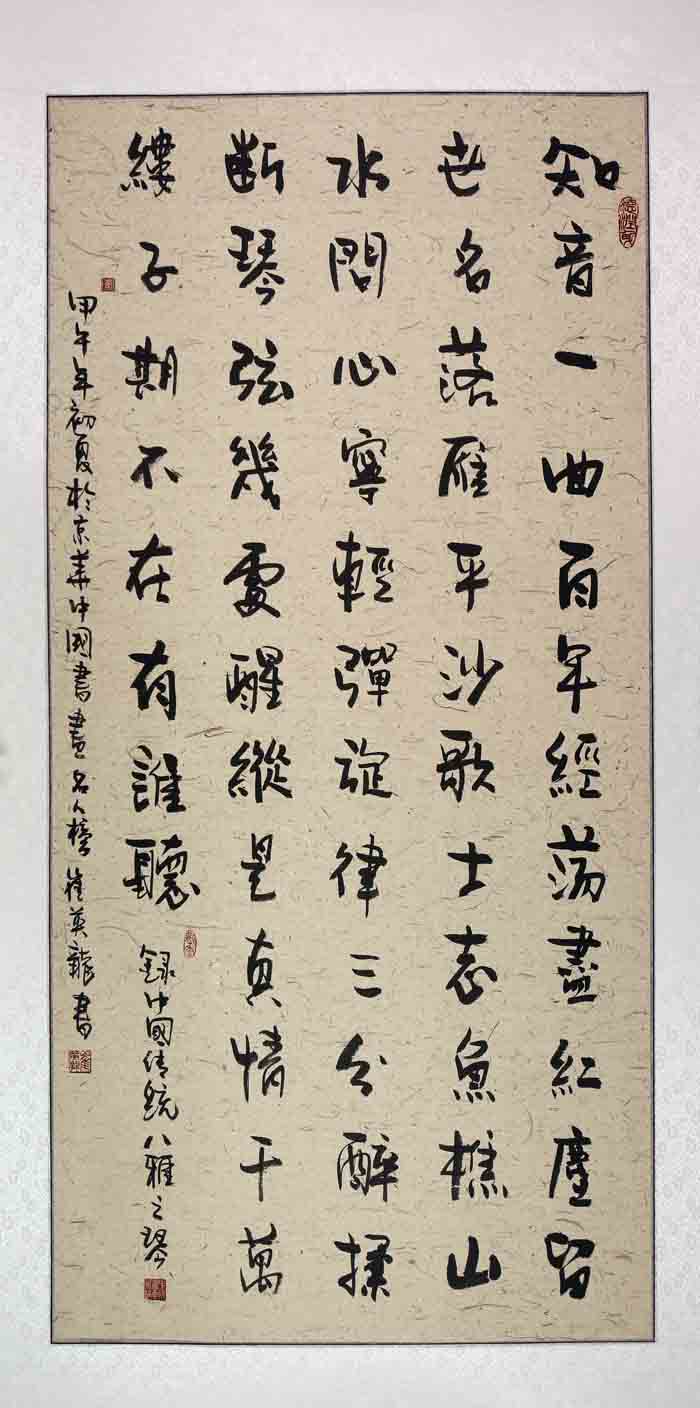 知音一曲百年經蕩盡紅塵留
世名落雁平沙歌士志魚樵山
水問心寧輕彈旋律三分醉揉
断琴弦幾處醒縱是真情千萬
縷子期不在有誰聽
録中國傳統八雅之琴
甲午年初夏於京華中國書畫名人榜崔英龍書